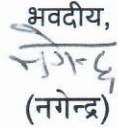 भवदीय,
नगेन्द्र
(नगेन्द्र)